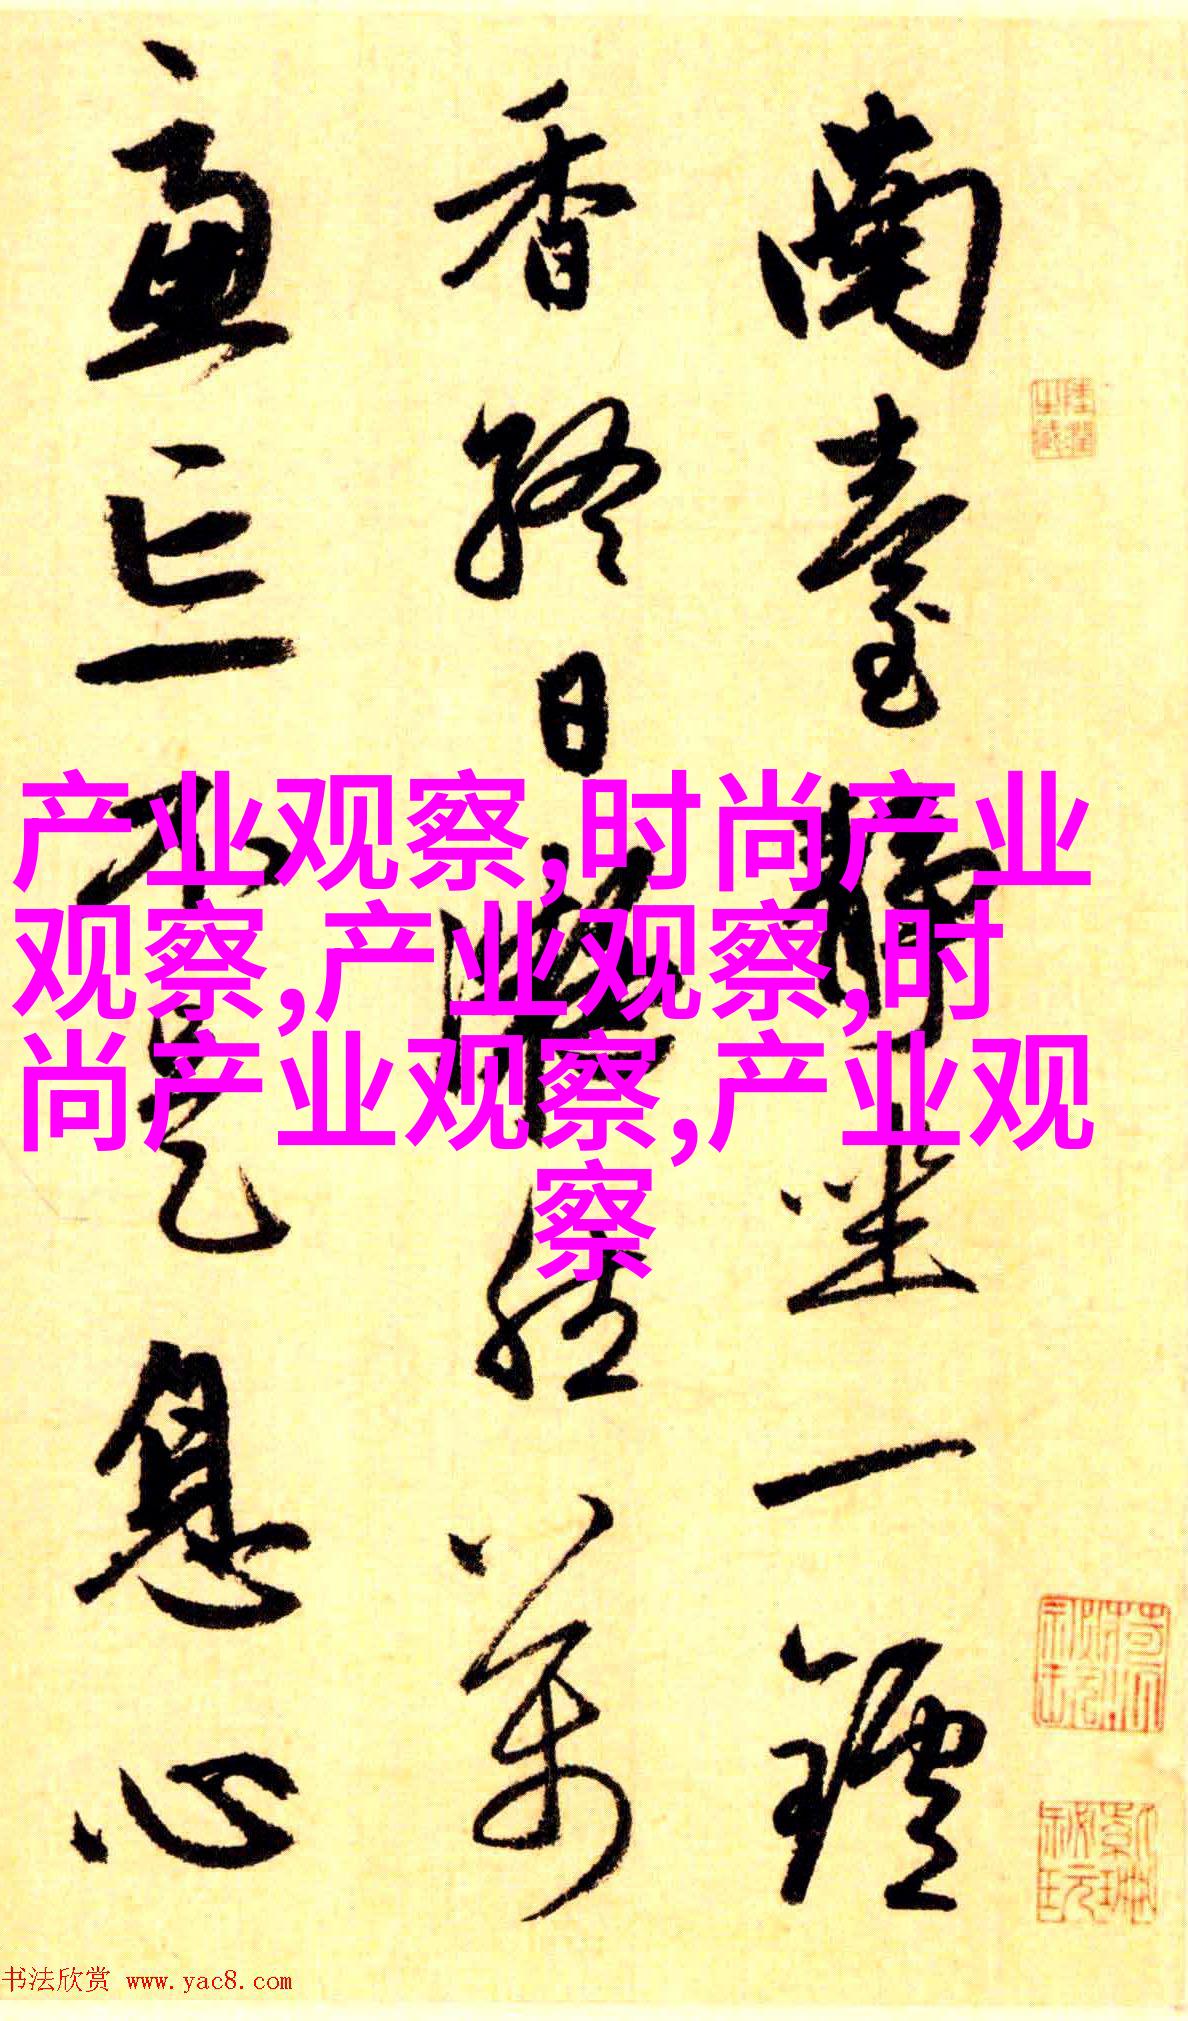 南臺靜坐一鑪
香終日凝然萬
慮忘不是息心
产业观察,时尚产业
观察,产业观察,时
尚产业观察,产业观
察
书法欣赏 www.yac8.com